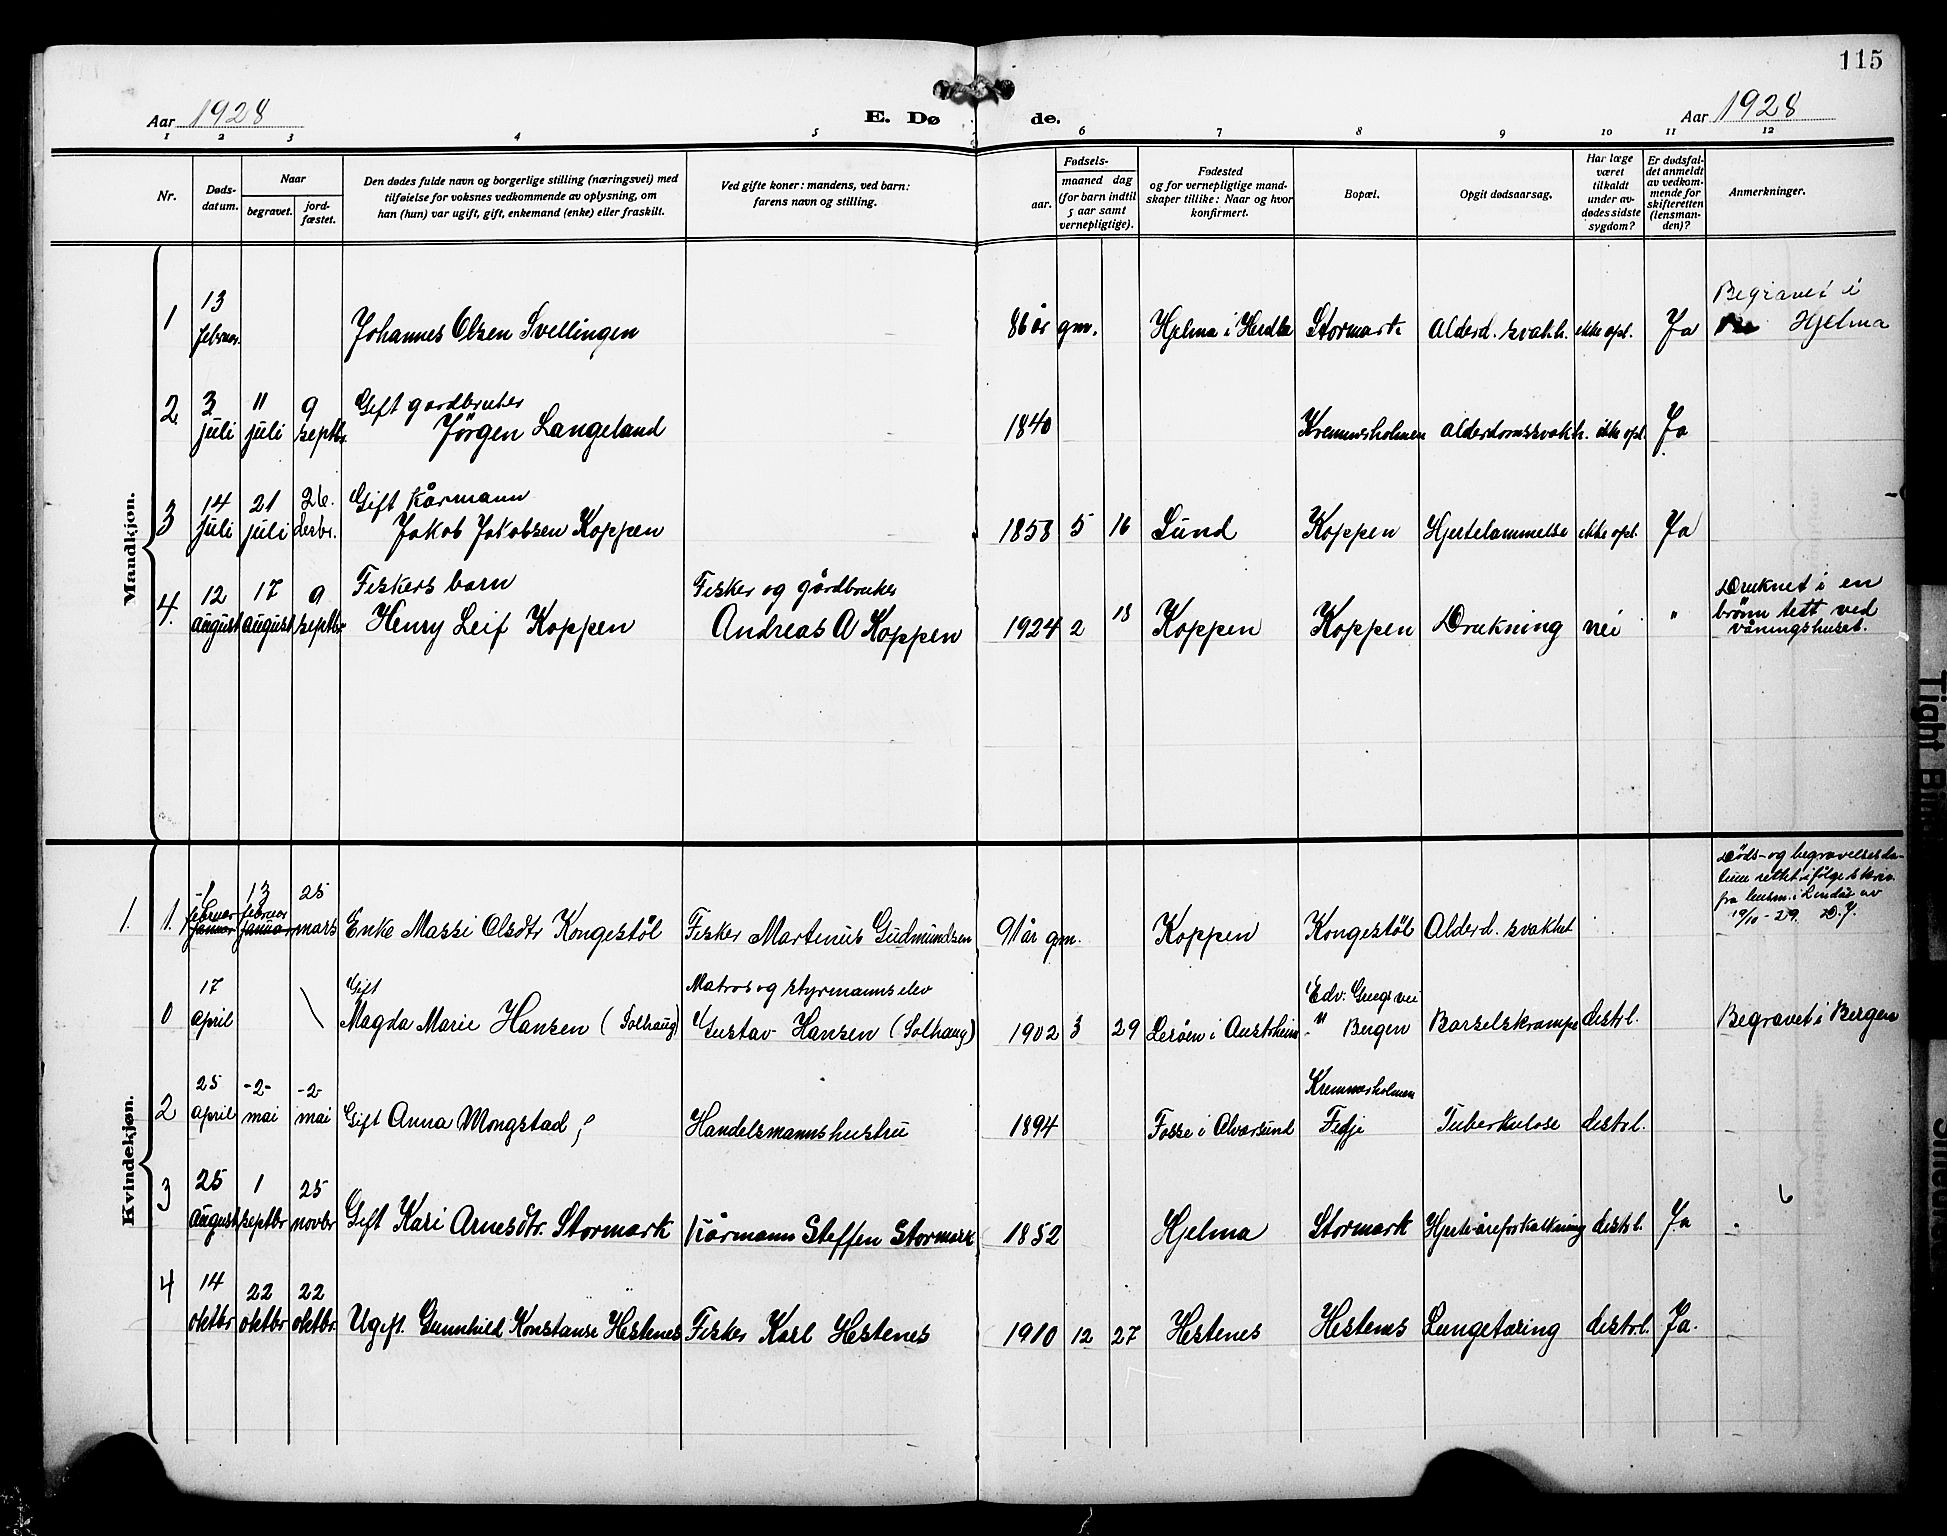 115
Aar 1928
E. Dø de.
Aar 1928
1 2 3 4 5 6 7 8 9 10 11 12
Nr.
Døds-
datum.
Naar
begravet.
jord-
fæstet.
Den dødes fulde navn og borgerlige stilling (næringsvei) med
tilføielse for voksnes vedkommende av oplysning, om
han (hun) var ugift, gift, enkemand (enke) eller fraskilt.
Ved gifte koner: mandens, ved barn:
farens navn og stilling.
Fødsels-
aar.
maaned dag
(for barn indtil
5 aar samt
vernepligtige).
Fødested
og for vernepligtige mand-
skaper tillike: Naar og hvor
konfirmert.
Bopæl.
Opgit dødsaarsag.
Har læge
været
tilkaldt
under av-
dødes sidste
sygdom?
Er dødsfal-
det anmeldt
av vedkom-
mende for
skifteretten
(lensman-
den)?
Anmerkninger.
Mandkjøn.
1
13
februar.
Johannes Olsen Svellingen
86 år gm.
Hjelma i Herdla
Stormark
Alderd. svak.h.
ikke opl.
Ja
Begravet i
Hjelma
2
3
juli
11
juli
9
septbr.
Gift gardbruker
Jörgen Langeland
1840
Kremmerholmen
alderdomssvakh.
ikke opl.
Ja
3
14
juli
21
juli
26.
Gift kårmann
Jakob Jakobsen Koppen
1858 5 16
Lund
Koppen
Hjertelammelse
ikke opl.
Ja
4.
12
august
17
august
9
septbr
Fiskers barn
Henry Leif Koppen
Fisker og gårdbruker
Andreas A Koppen
1924 2 18
Koppen
Koppen
Drukning
nei
"
Druknet i en
brönn tett ved
våningshuset.
Kvindekjøn.
1.
1.
februar
januar
13
februar
januar
25
mars
Enke Massi Olsdtr Kongestöl
Fisker Martinus Gudmundsen
91 år gm.
Koppen
Kongestöl
Alderd. svakhet
Döds- og begravelsesda-
tum rettet ifölge skriv
fra lensm. i Lindås av
19/10-29. D.J.
0
17
april
\
Gift
Magda Marie Hansen (Solhaug)
Matros og styrmannselev
Gustav Hansen (Solhaug)
1902 3 29
Leröen i Austrheim
Edv. Griegs vei
" Bergen
Barselskrampe
distr.l.
Begravet i Bergen
2
25
april
-2-
mai
-2-
mai
Gift Anna Mongstad
Handelsmannshustru
1894
Fosse i Alversund
Kremmerholmen
Fedje
Tuberkulose
distr.l.
3
25
august
1
septbr
25
novbr
Gift Kari Arnesdtr. Stormark
Kårmann Steffen Stormark
1852
Hjelma
Stormark
Hjerte-åreforkalkning
distr.l.
Ja
6
4
14
oktbr
22
oktbr
22
oktbr.
Ugift. Gunnhild Konstanse Hestenes
Fisker Karl Hestenes
1910 12 27
Hestenes
Hestenes
Lungetæring
distr.l.
Ja.
Tight Bin